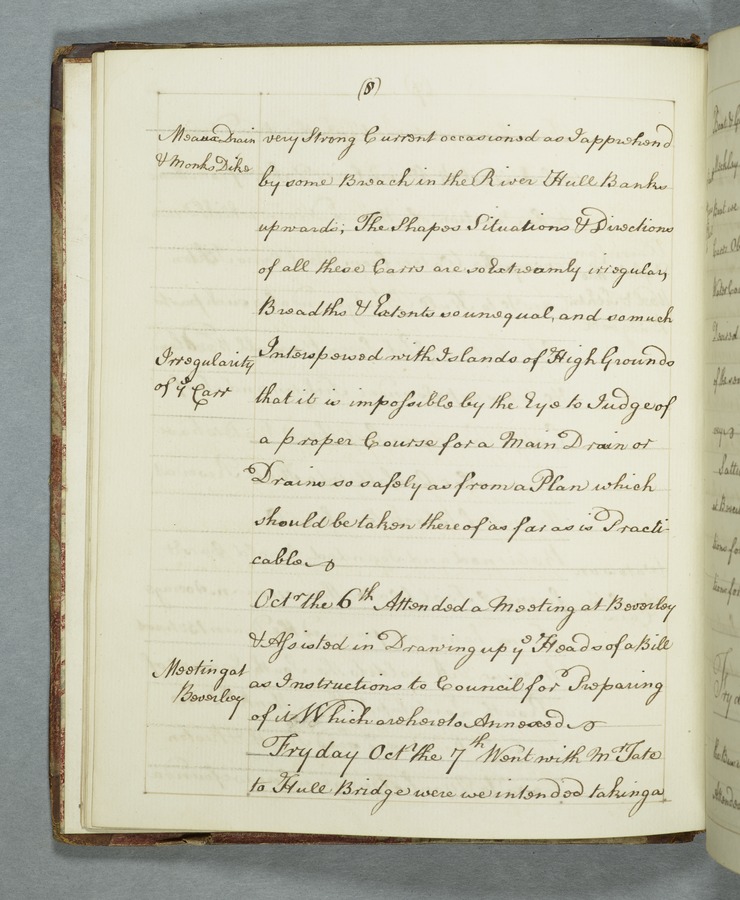 (8)
Meaux Drain
& Monks Dike
very Strong Current occasioned as I apprehend
by some Breach in the River Hull Banks
upwards; The Shapes Situations & Directions
of all these Carrs are so Extreamly irregular,
Breadths & Extents so unequal, and so much
Irregularity
of yͤ Carr
Interspersed with Islands of High Grounds
that it is impossible by the Eye to Judge of
a proper Course for a Main Drain or
Drains so safely as from a Plan which
should be taken thereof as far as is Practi
cable
Octr the 6th Attended a Meeting at Beverley
& Assisted in Drawing up yͤ Heads of a Bill
Meeting at
Beverley
as Instructions to Council for Preparing
of it Which are hereto Annexed
Fryday Octr the 7th Went with Mr Tate
to Hull Bridge were we intended taking a